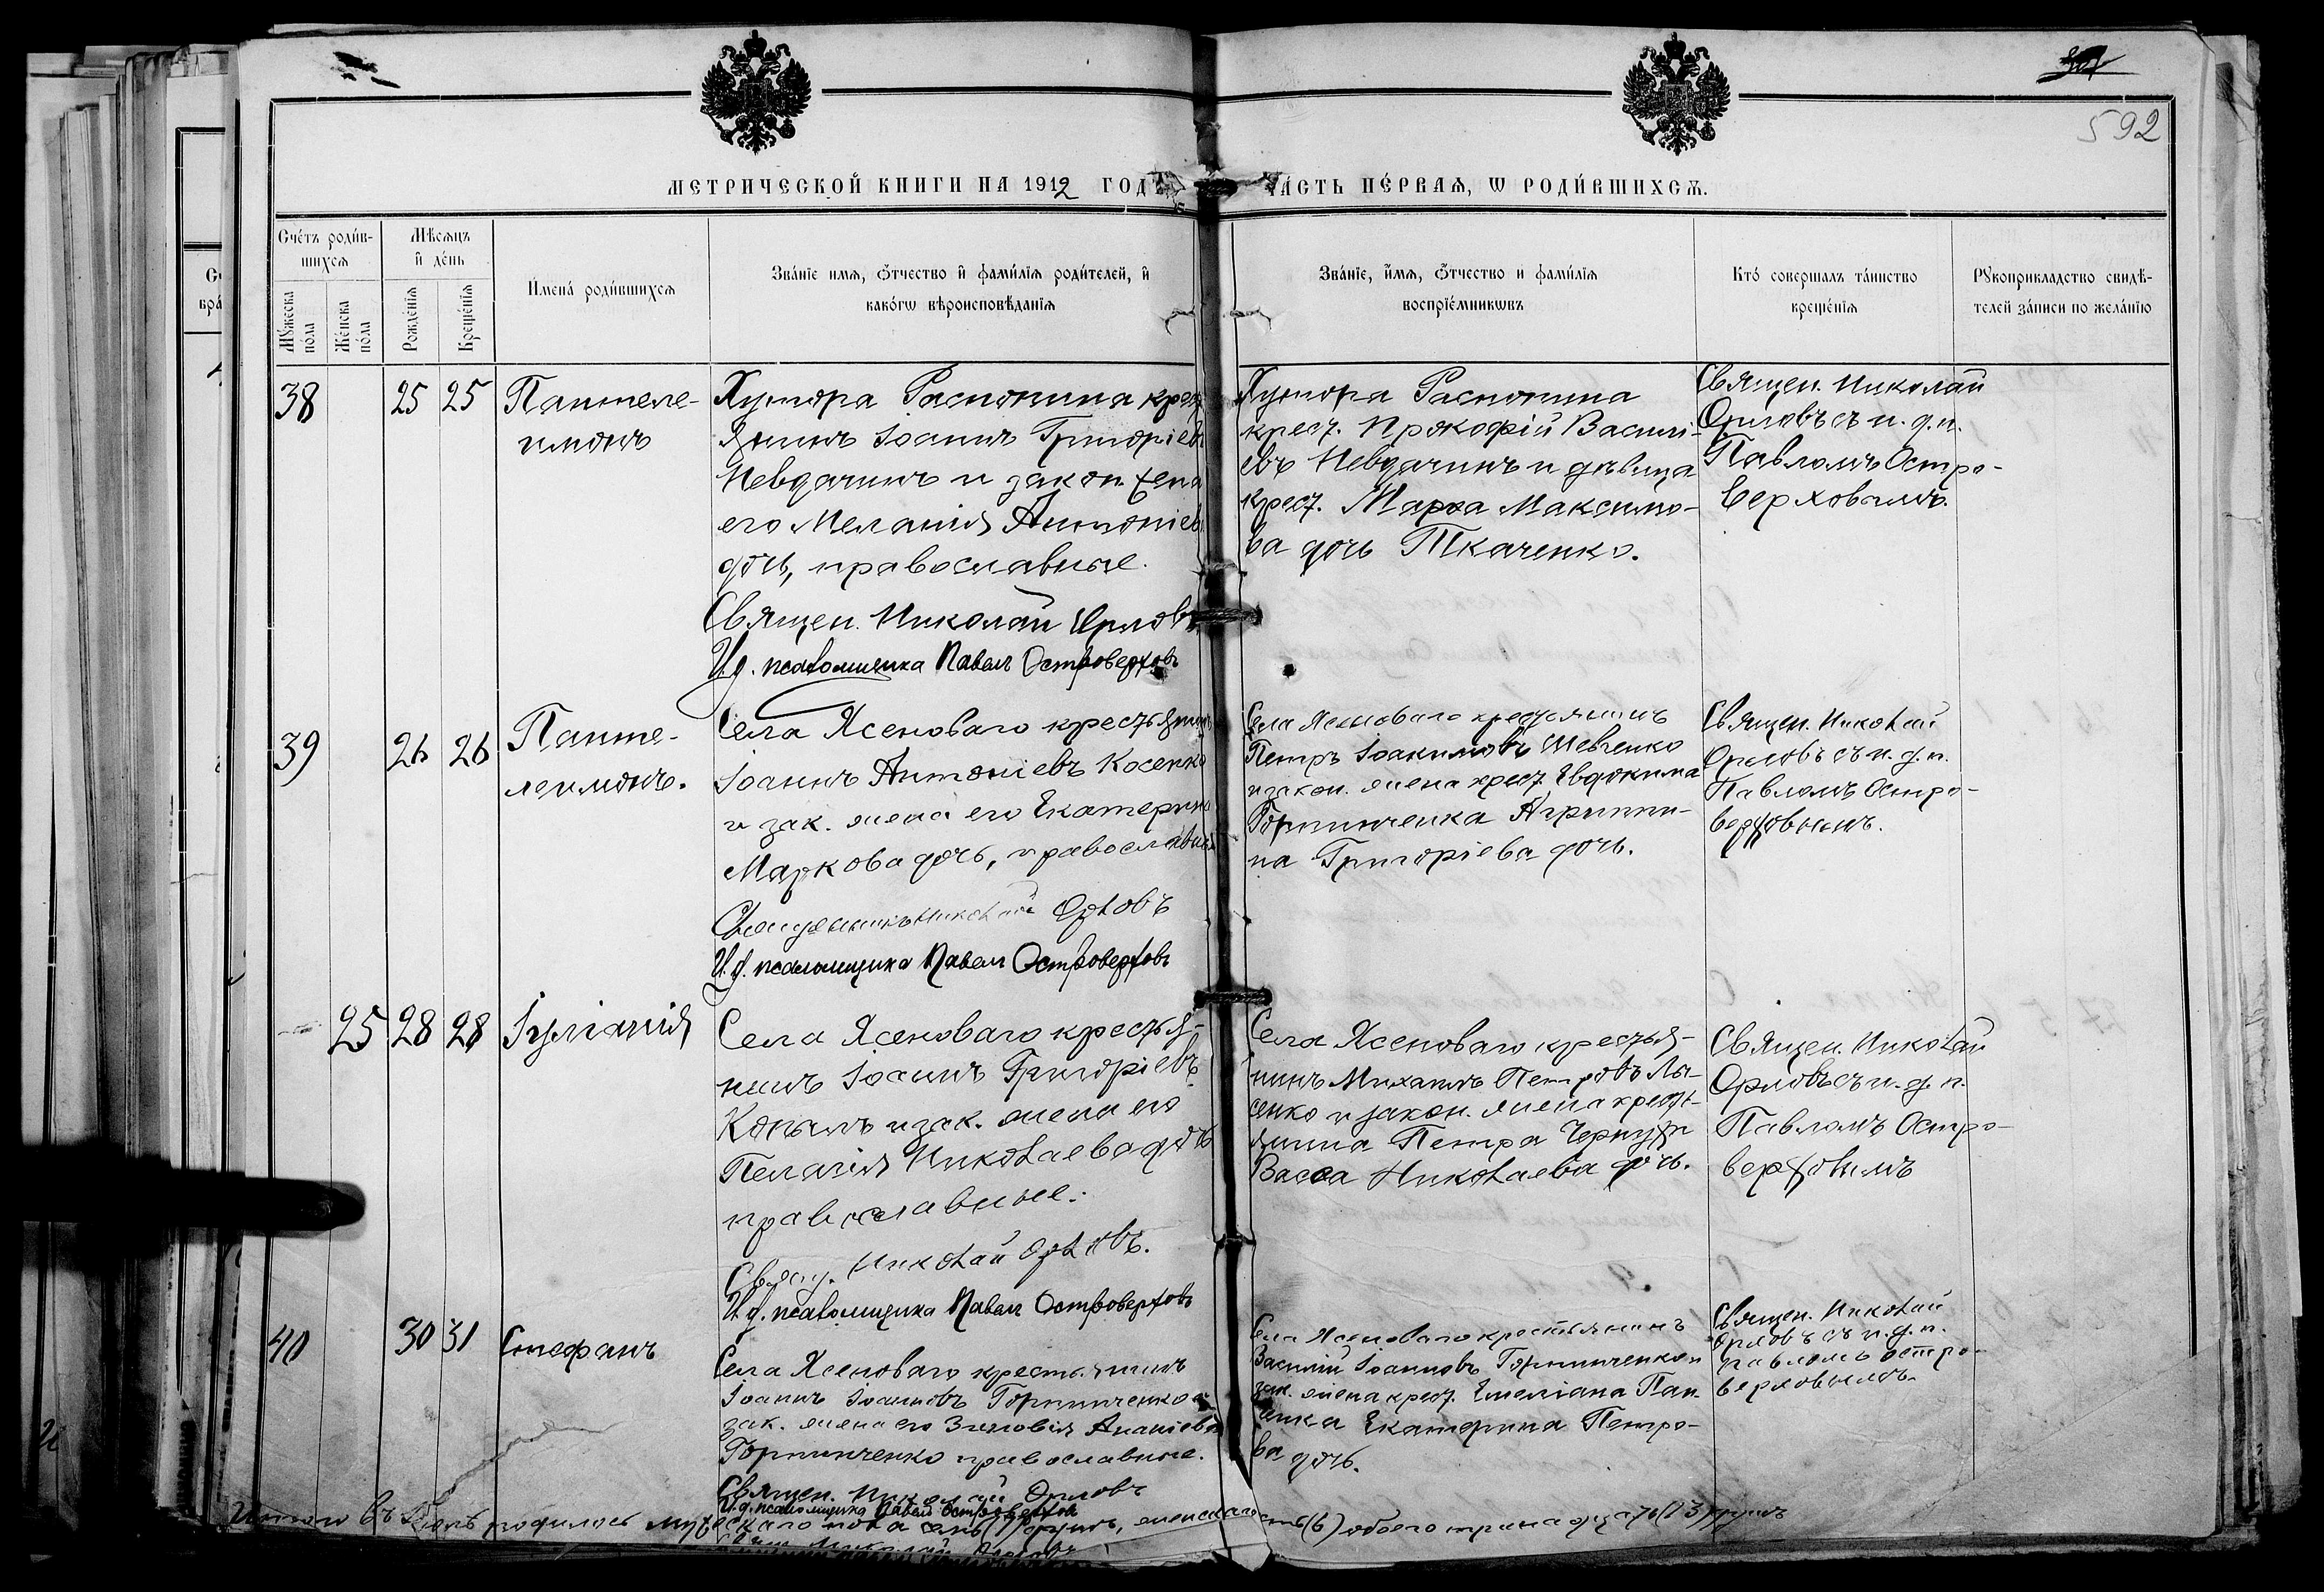 592
МЕТРИЧЕСКОЙ КНИГИ НА 1912 ГОДЪ
ЧА́СТЬ ПЕ́РВАѦ, Ѡ РОДИ́ВШИХСѦ.
Сче́тъ роди́в-
шихсѧ
Мꙋ́жеска
по́ла
Же́нска
по́ла
Мѣ́сѧцъ
и҆ де́нь
Рожде́нїѧ
Креще́нїѧ
И҆мена́ роди́вшихсѧ
Зва́нїе имѧ, ѻ҆́тчество и҆ фами́лїѧ роди́телей, и҆
како́гѡ вѣроисповѣ́данїѧ
Зва́нїе, и҆́мѧ, ѻ҆́тчество и фами́лїѧ
воспрїе́мникѡвъ
Кто́ совершалъ та́инство
креще́нїѧ
Рꙋкоприкладство свидѣ́-
телей за́писи по жела́нїю
38
25 25
Пантеле-
имонъ
Хутора Распопина крест
янинъ Іоаннъ Григоріевъ
Невдачинъ и закон. жена
его Меланія Антоніева
дочь, православные.
Священ. Николай Орловъ
И. д. псаломщика Павелъ Островерховъ
Хутора Распопина
крест. Прокофій Василі-
евъ Невдачинъ и дѣвица
крест. Марѳа Максимо-
ва дочь Ткаченко.
Священ. Николай
Орловъ съ и. д. п.
Павломъ Остро-
верховымъ.
39
26 26
Панте-
леимонъ.
Села Ясеноваго крестьянинъ
Іоаннъ Антоніевъ Косенко
и зак. жена его Екатерина
Маркова дочь, православные
Священникъ Николай Орловъ
И. д. псаломщика Павелъ Островерховъ
Села Ясеноваго крестьянинъ
Петръ Іоакимовъ Шевченко
и закон. жена крест. Евдокима
Горпинченка Агриппи-
на Григоріева дочь.
Священ. Николай
Орловъ съ и. д. п.
Павломъ Остро-
верховымъ.
25 28 28
Іуліанія
Села Ясеноваго крестья-
нинъ Іоаннъ Григоріевъ
Копылъ и зак. жена его
Пелагія Николаева дочь
православные.
Свящ. Николай Орловъ.
И. д. псаломщика Павелъ Островерховъ
Села Ясеноваго крестья-
нинъ Михаилъ Петровъ Лы-
сенко и закон. жена кресть-
янина Петра
Васса Николаева дочь.
Священ. Николай
Орловъ съ и. д. п.
Павломъ Остро-
верховымъ
40
30 31
Стефанъ
Села Ясеноваго крестьянинъ
Іоаннъ Іоанновъ Горпинченко и
зак. жена его Зиновія Ананіева
Горпинченко православные.
Священ. Николай Орловъ
И. д. псаломщика Павелъ Островерховъ
Села Ясеноваго крестьянинъ
Василій Іоанновъ Горпинченко и
зак. жена крест. Емеліана Пан
ченка Екатерина Петро-
ва дочь.
Священ. Николай
Орловъ съ и. д. п.
Павломъ Остро-
верховымъ.
Итого въ Іюлѣ родилось мужескаго пола семь (7) душъ, женскаго шесть (6) обоего тринадцать (13) душъ
Свящ. Николай Орловъ